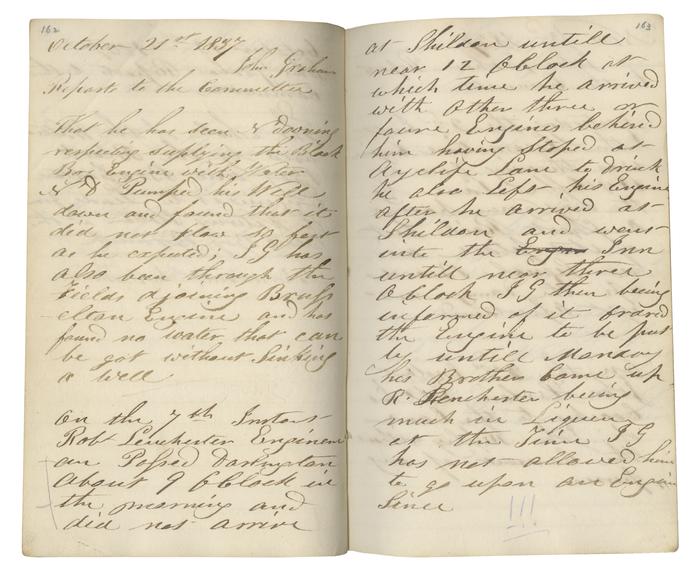 162
October 21st 1837
John Graham
Reports to the Committee
That he has seen N Downing
respecting suplying the Black
Boy Engine with Water
N D Pumped his Well
down and found that it
did not flow so fast
as he expected; J G has
also been through the
Fields adjoining Bruss
elton Engine and has
found no water that can
be got without Sinking
a Well
On the 7th Instant
Robt Lenchester Engineman
Passed Darlington
about 9 OClock in
the morning and
did not arrive
163
at Shildon untill
near 12 OClock at
which time he arrived
with other three or
foure Engines behind
him having Stoped at
Ayclife Lane to drink
he also Left his Engine
after he arrived at
Shildon and went
into the Engn Inn
untill near three
OClock J G then being
informed of it
the Engine to be put
by untill Monday
his Brother Came up
R Lenchester being
much in Liquor
at the Time J G
has not allowed him
to go upon an Engine
Since
!!!